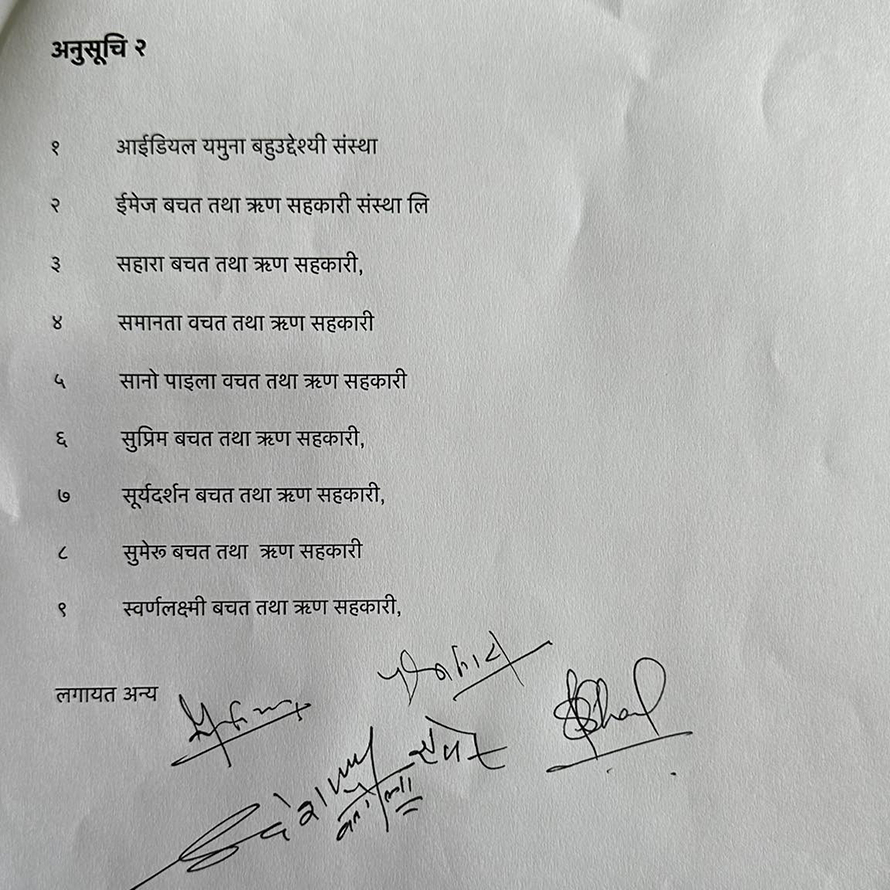 अनुसूचि २
१ आईडियल यमुना बहुउद्देश्यी संस्था
२ ईमेज बचत तथा ऋण सहकारी संस्था लि
३ सहारा बचत तथा ऋण सहकारी,
४ समानता वचत तथा ऋण सहकारी
५ सानो पाइला वचत तथा ऋण सहकारी
६ सुप्रिम बचत तथा ऋण सहकारी,
७ सूर्यदर्शन बचत तथा ऋण सहकारी,
८ सुमेरू बचत तथा  ऋण सहकारी
९ स्वर्णलक्ष्मी बचत तथा ऋण सहकारी,
लगायत अन्य